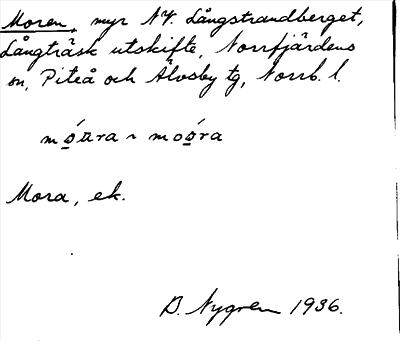 Moren, myr NV. Långstrandberget,
Långträsk utskifte, Norrfjärdens
sn, Piteå och Älvsby tg, Norrb. l.
móɯra ~ moóra
Mora, ek.
B. Nygren 1936.